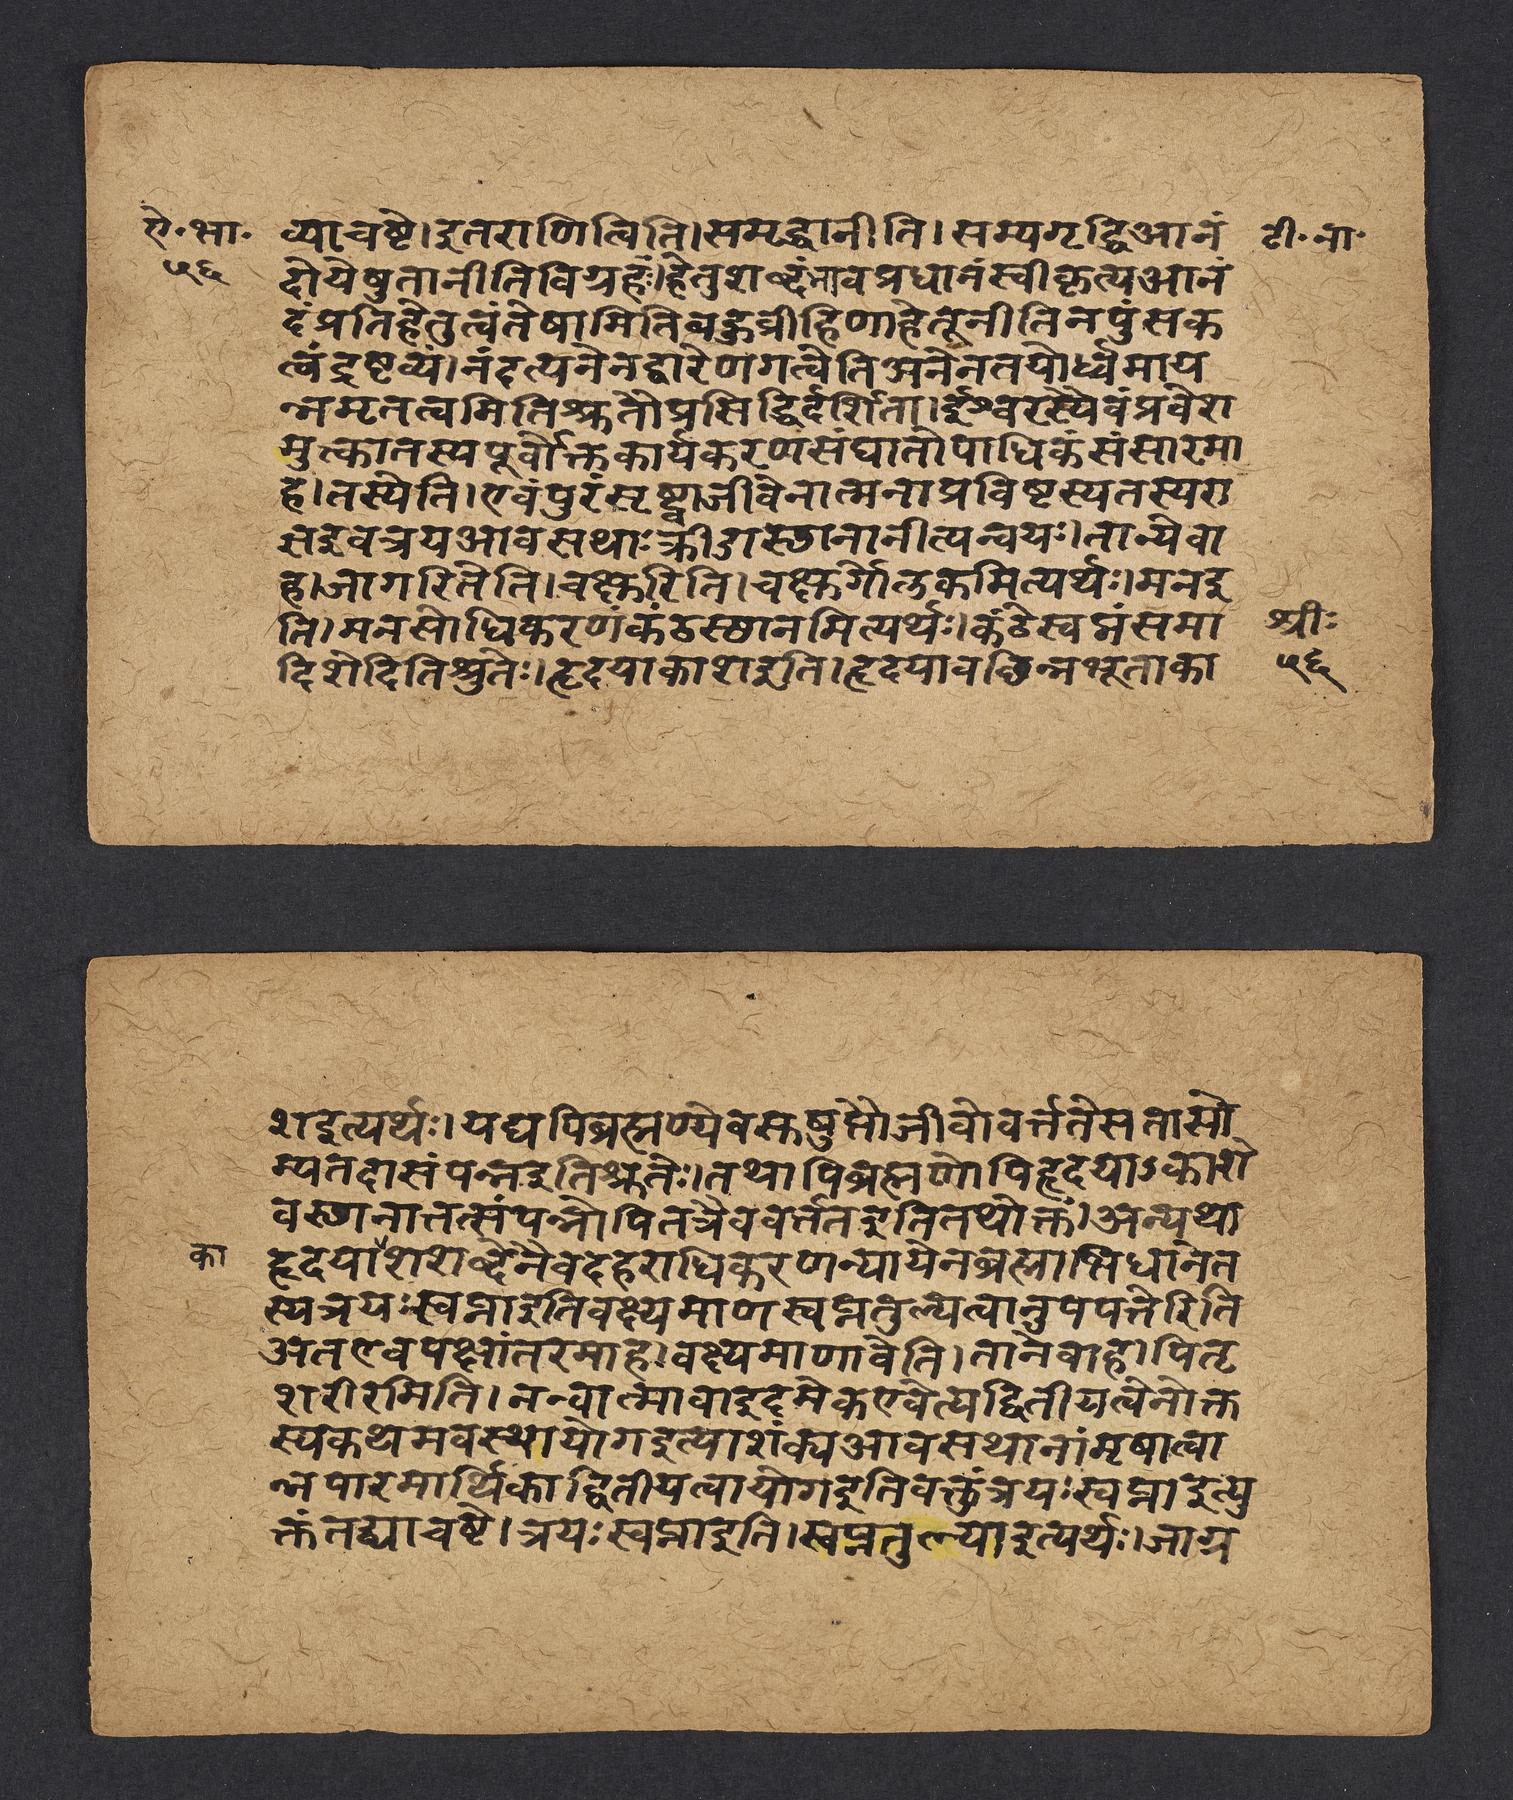 ऐ॰भा॰ व्याचष्टे।इतराणित्विति।समृद्धानीति।सम्यगृद्धिआनं टी॰ना॰
५६ दोयेषुतानीतिविग्रहः।हेतुशब्दंभावप्रधानंस्वीकृत्यआनं
दंप्रतिहेतुत्वंतेषामितिबहुव्रीहिणाहेतूनीतिनपुंसक
त्वंद्रष्टव्यं।नंदत्यनेनद्वारेणगत्वेतिअनेनतयोर्ध्वमाय
न्नमृतत्वमितिश्रुतौप्रसिद्धिर्दर्शिता।ईश्वरस्यैवंप्रवेश
मुत्कातस्यपूर्वोक्तकार्यकरणसंघातोपाधिकंसंसारमा
हे।तस्येति।एवंपुरंसृष्ट्वाजीवेनात्मनाप्रविष्टस्यतस्यरा
ज्ञइवत्रयआवसथाःक्रीडास्थानानीत्यन्वयः।तान्येवा
ह।जागरितेति।चक्षुरिति।चक्षुर्गोलकमित्यर्थः।मनइ
ति।मनसोधिकरणंकंठस्थानमित्यर्थः।कंठेस्वप्नंसमा श्रीः
दिशेदितिश्रुतेः।हृदयाकाशइति।हृदयावछिन्नभूताका ५६
शइत्यर्थः।यद्यपिब्रह्मण्येवसुषुप्तौजीवोवर्त्ततेसतासो
म्यतदासंपन्नइतिश्रुतेः।तथापिब्रह्मणोपिहृदयाऽकाशे
वस्थानात्तत्संपन्नोपितत्रैववर्त्ततइतितथोक्तं।अन्यथा
का हृदयाशशब्देनैवदहराधिकरणन्यायेनब्रह्माभिधानेत
स्यत्रयःस्वप्नाइतिवक्ष्यमाणस्वप्नतुल्यत्वानुपपत्तेरिति
अतएवपक्षांतरमाह।वक्ष्यमाणावेति।तानेवाह।पितृ
शरीरमिति।नन्वात्मावाइदमेकएवेत्यद्वितीयत्वेनोक्त
स्यकथमवस्थायोगइत्याशंक्यआवसथानांमृषात्वा
न्नपारमार्थिकाद्वितीयत्वायोगइतिवक्तुंत्रयःस्वप्नाइत्यु
क्तंतद्याचष्टे।त्रयःस्वप्नाइति।स्वप्नतुल्याइत्यर्थः।जाग्र